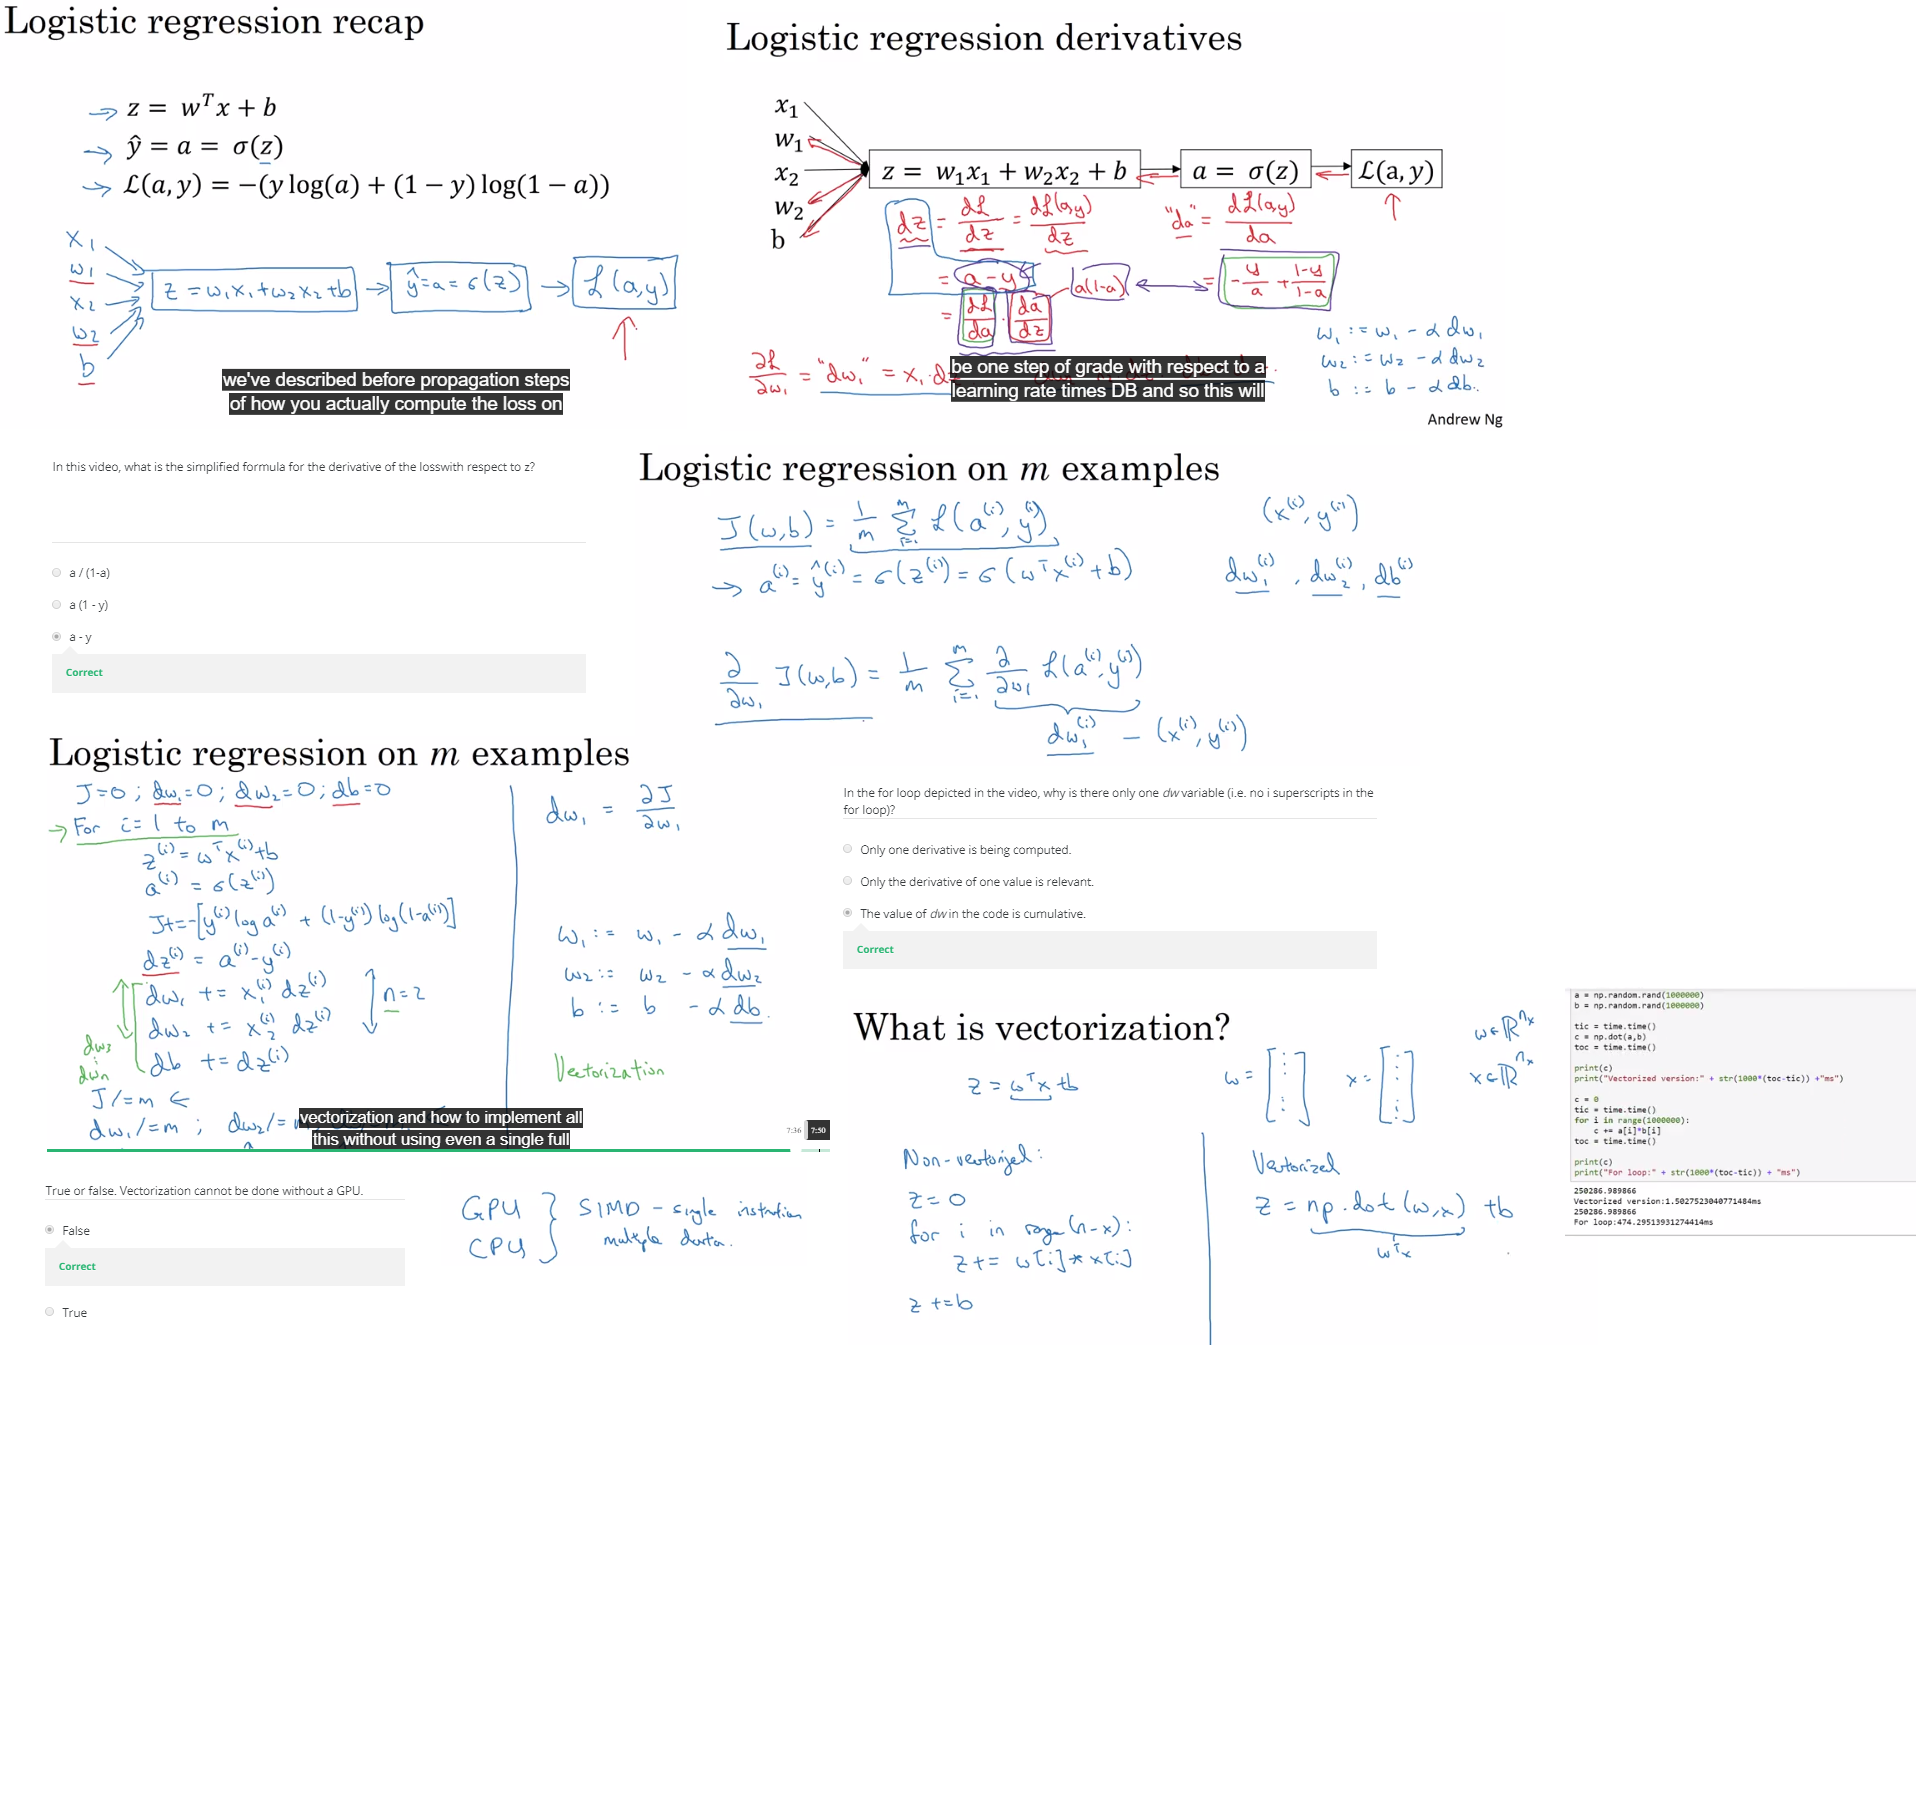 Logistic regression recap
→ z = wᵀx + b
→ ŷ = a = σ(z)
→ ℒ(a, y) = −(y log(a) + (1 − y) log(1 − a))
x₁
w₁
x₂
w₂
b
z = w₁x₁ + w₂x₂ + b → ŷ = a = σ(z) → ℒ(a, y)
we've described before propagation steps
of how you actually compute the loss on
Logistic regression derivatives
x₁
w₁
x₂
w₂
b
z = w₁x₁ + w₂x₂ + b
a = σ(z)
ℒ(a, y)
dz = dℒ/dz = dℒ(a,y)/dz
"da" = dℒ(a,y)/da
= a − y
a(1−a)
= −y/a + (1−y)/(1−a)
= dℒ/da · da/dz
∂ℒ/∂w₁ = "dw₁" = x₁ · dz
be one step of grade with respect to a
learning rate times DB and so this will
w₁ := w₁ − α dw₁
w₂ := w₂ − α dw₂
b := b − α db.
Andrew Ng
In this video, what is the simplified formula for the derivative of the losswith respect to z?
a / (1-a)
a (1 - y)
a - y
Correct
Logistic regression on m examples
J(w,b) = 1/m Σᵢ₌₁ᵐ ℒ(a⁽ⁱ⁾, y⁽ⁱ⁾)
(x⁽ⁱ⁾, y⁽ⁱ⁾)
→ a⁽ⁱ⁾ = ŷ⁽ⁱ⁾ = σ(z⁽ⁱ⁾) = σ(wᵀx⁽ⁱ⁾ + b)
dw₁⁽ⁱ⁾, dw₂⁽ⁱ⁾, db⁽ⁱ⁾
∂/∂w₁ J(w,b) = 1/m Σᵢ₌₁ᵐ ∂/∂w₁ ℒ(a⁽ⁱ⁾, y⁽ⁱ⁾)
dw₁⁽ⁱ⁾ − (x⁽ⁱ⁾, y⁽ⁱ⁾)
Logistic regression on m examples
J=0; dw₁=0; dw₂=0; db=0
→ For i = 1 to m
z⁽ⁱ⁾ = wᵀx⁽ⁱ⁾+b
a⁽ⁱ⁾ = σ(z⁽ⁱ⁾)
J += −[y⁽ⁱ⁾ log a⁽ⁱ⁾ + (1−y⁽ⁱ⁾) log(1−a⁽ⁱ⁾)]
dz⁽ⁱ⁾ = a⁽ⁱ⁾ − y⁽ⁱ⁾
dw₁ += x₁⁽ⁱ⁾ dz⁽ⁱ⁾
n=2
dw₂ += x₂⁽ⁱ⁾ dz⁽ⁱ⁾
dw₃
⋮
dwₙ
db += dz⁽ⁱ⁾
J /= m ←
dw₁ /= m ; dw₂ /=
dw₁ = ∂J/∂w₁
w₁ := w₁ − α dw₁
w₂ := w₂ − α dw₂
b := b − α db.
Vectorization
vectorization and how to implement all
this without using even a single full
7:36 7:50
In the for loop depicted in the video, why is there only one dw variable (i.e. no i superscripts in the
for loop)?
Only one derivative is being computed.
Only the derivative of one value is relevant.
The value of dw in the code is cumulative.
Correct
True or false. Vectorization cannot be done without a GPU.
False
Correct
True
GPU
CPU
SIMD - single instruction
multiple data.
What is vectorization?
z = wᵀx + b
w = [⋮] x = [⋮]
w ∈ ℝⁿˣ
x ∈ ℝⁿˣ
Non-vectorized:
z = 0
for i in range(n-x):
z += w[i] * x[i]
z += b
Vectorized
z = np.dot(w,x) + b
wᵀx
a = np.random.rand(1000000)
b = np.random.rand(1000000)
tic = time.time()
c = np.dot(a,b)
toc = time.time()
print(c)
print("Vectorized version:" + str(1000*(toc-tic)) +"ms")
c = 0
tic = time.time()
for i in range(1000000):
c += a[i]*b[i]
toc = time.time()
print(c)
print("For loop:" + str(1000*(toc-tic)) + "ms")
250286.989866
Vectorized version:1.5027523040771484ms
250286.989866
For loop:474.29513931274414ms